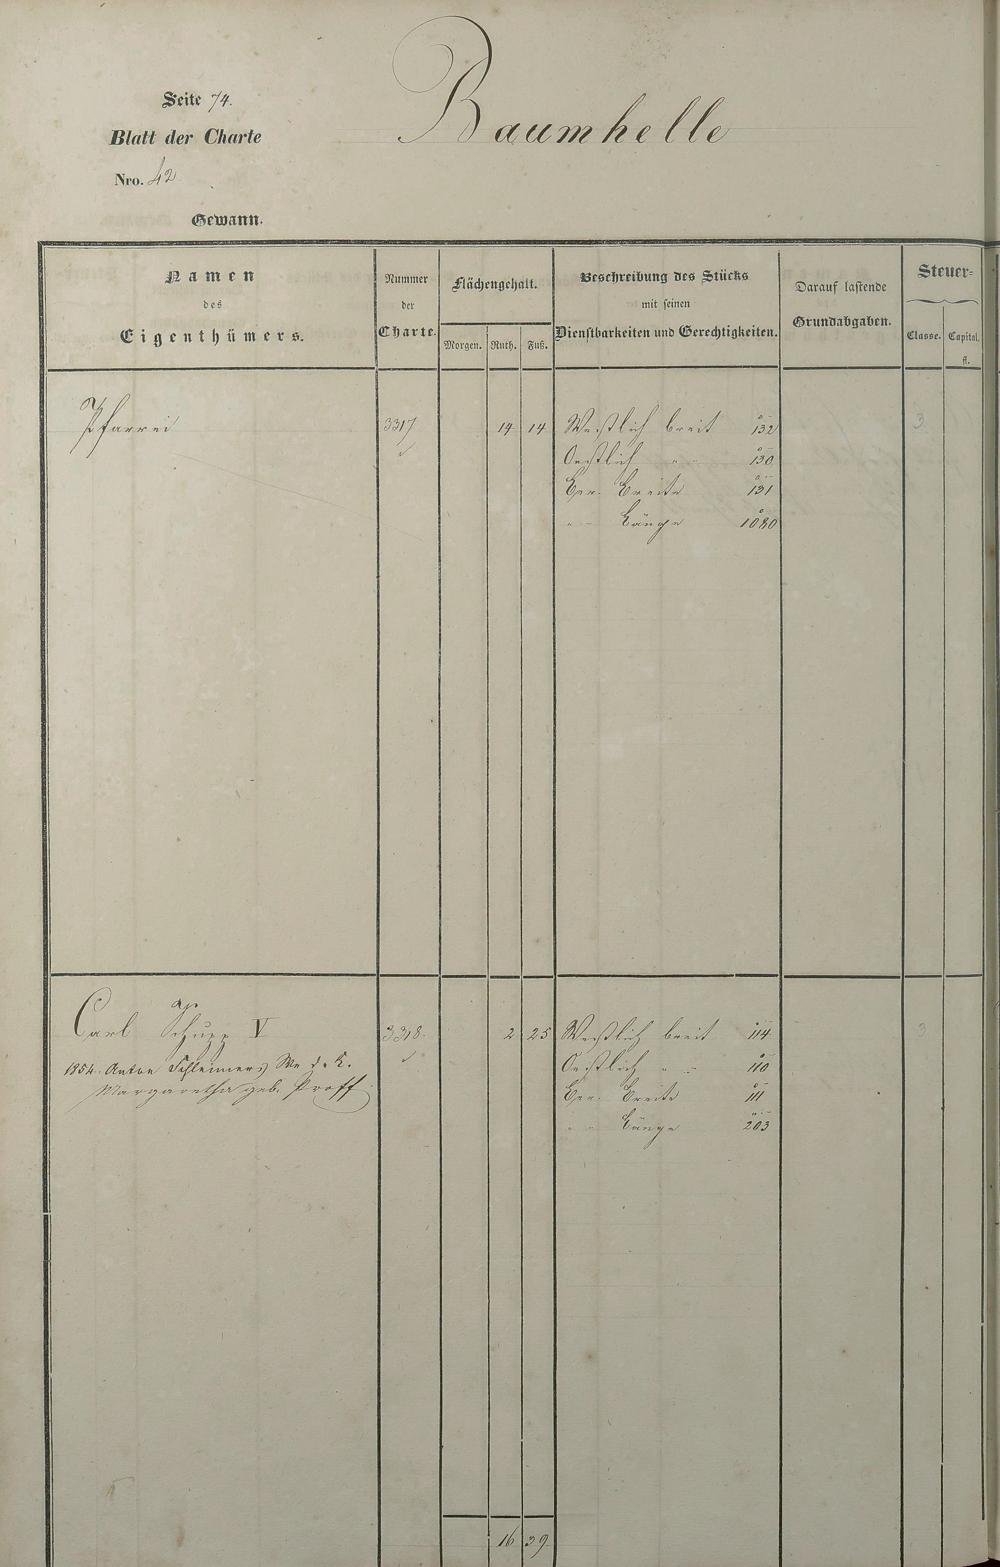 Baumhelle
Seite 74.
Blatt der Charte
Nro. 42
Gewann.
Namen
des
Eigenthümers.
Nummer
der
Charte.
Flächengehalt.
Morgen. Ruth. Fuß.
Beschreibung des Stücks
mit seinen
Dienstbarkeiten und Gerechtigkeiten.
Darauf lastende
Grundabgaben.
Steuer=
Classe. Capital.
fl.
Pfarrei 3317 14 14 Westlich breit 132 3
Oestlich " " 130
Ger. Breite 131
" " Länge 1080
Carl Schupp V 3318. 2 25 Westlich breit 114 3
1854. Anton Schleimers We d. K. Oestlich " " 110
Margaretha geb. Proff Ger. Breite 111
" " Länge 203
16 39